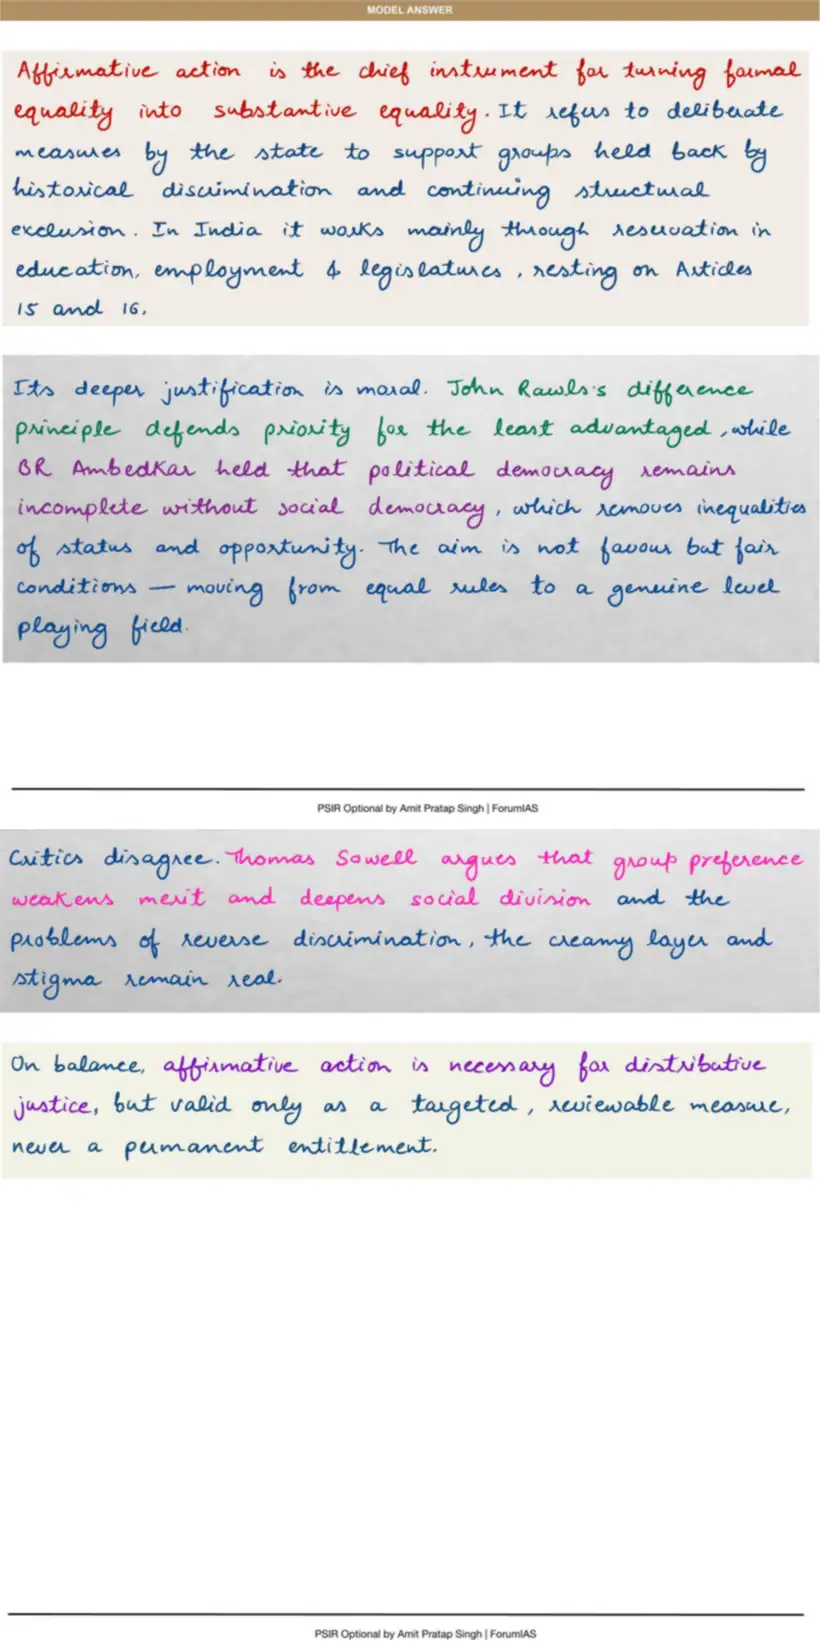 MODEL ANSWER
Affirmative action is the chief instrument for turning formal
equality into substantive equality. It refers to deliberate
measures by the state to support groups held back by
historical discrimination and continuing structural
exclusion. In India it works mainly through reservation in
education, employment & legislatures, resting on Articles
15 and 16.
Its deeper justification is moral. John Rawls's difference
principle defends priority for the least advantaged, while
BR Ambedkar held that political democracy remains
incomplete without social democracy, which removes inequalities
of status and opportunity. The aim is not favour but fair
conditions — moving from equal rules to a genuine level
playing field.
PSIR Optional by Amit Pratap Singh | ForumIAS
Critics disagree. Thomas Sowell argues that group preference
weakens merit and deepens social division and the
problems of reverse discrimination, the creamy layer and
stigma remain real.
On balance, affirmative action is necessary for distributive
justice, but valid only as a targeted, reviewable measure,
never a permanent entitlement.
PSIR Optional by Amit Pratap Singh | ForumIAS